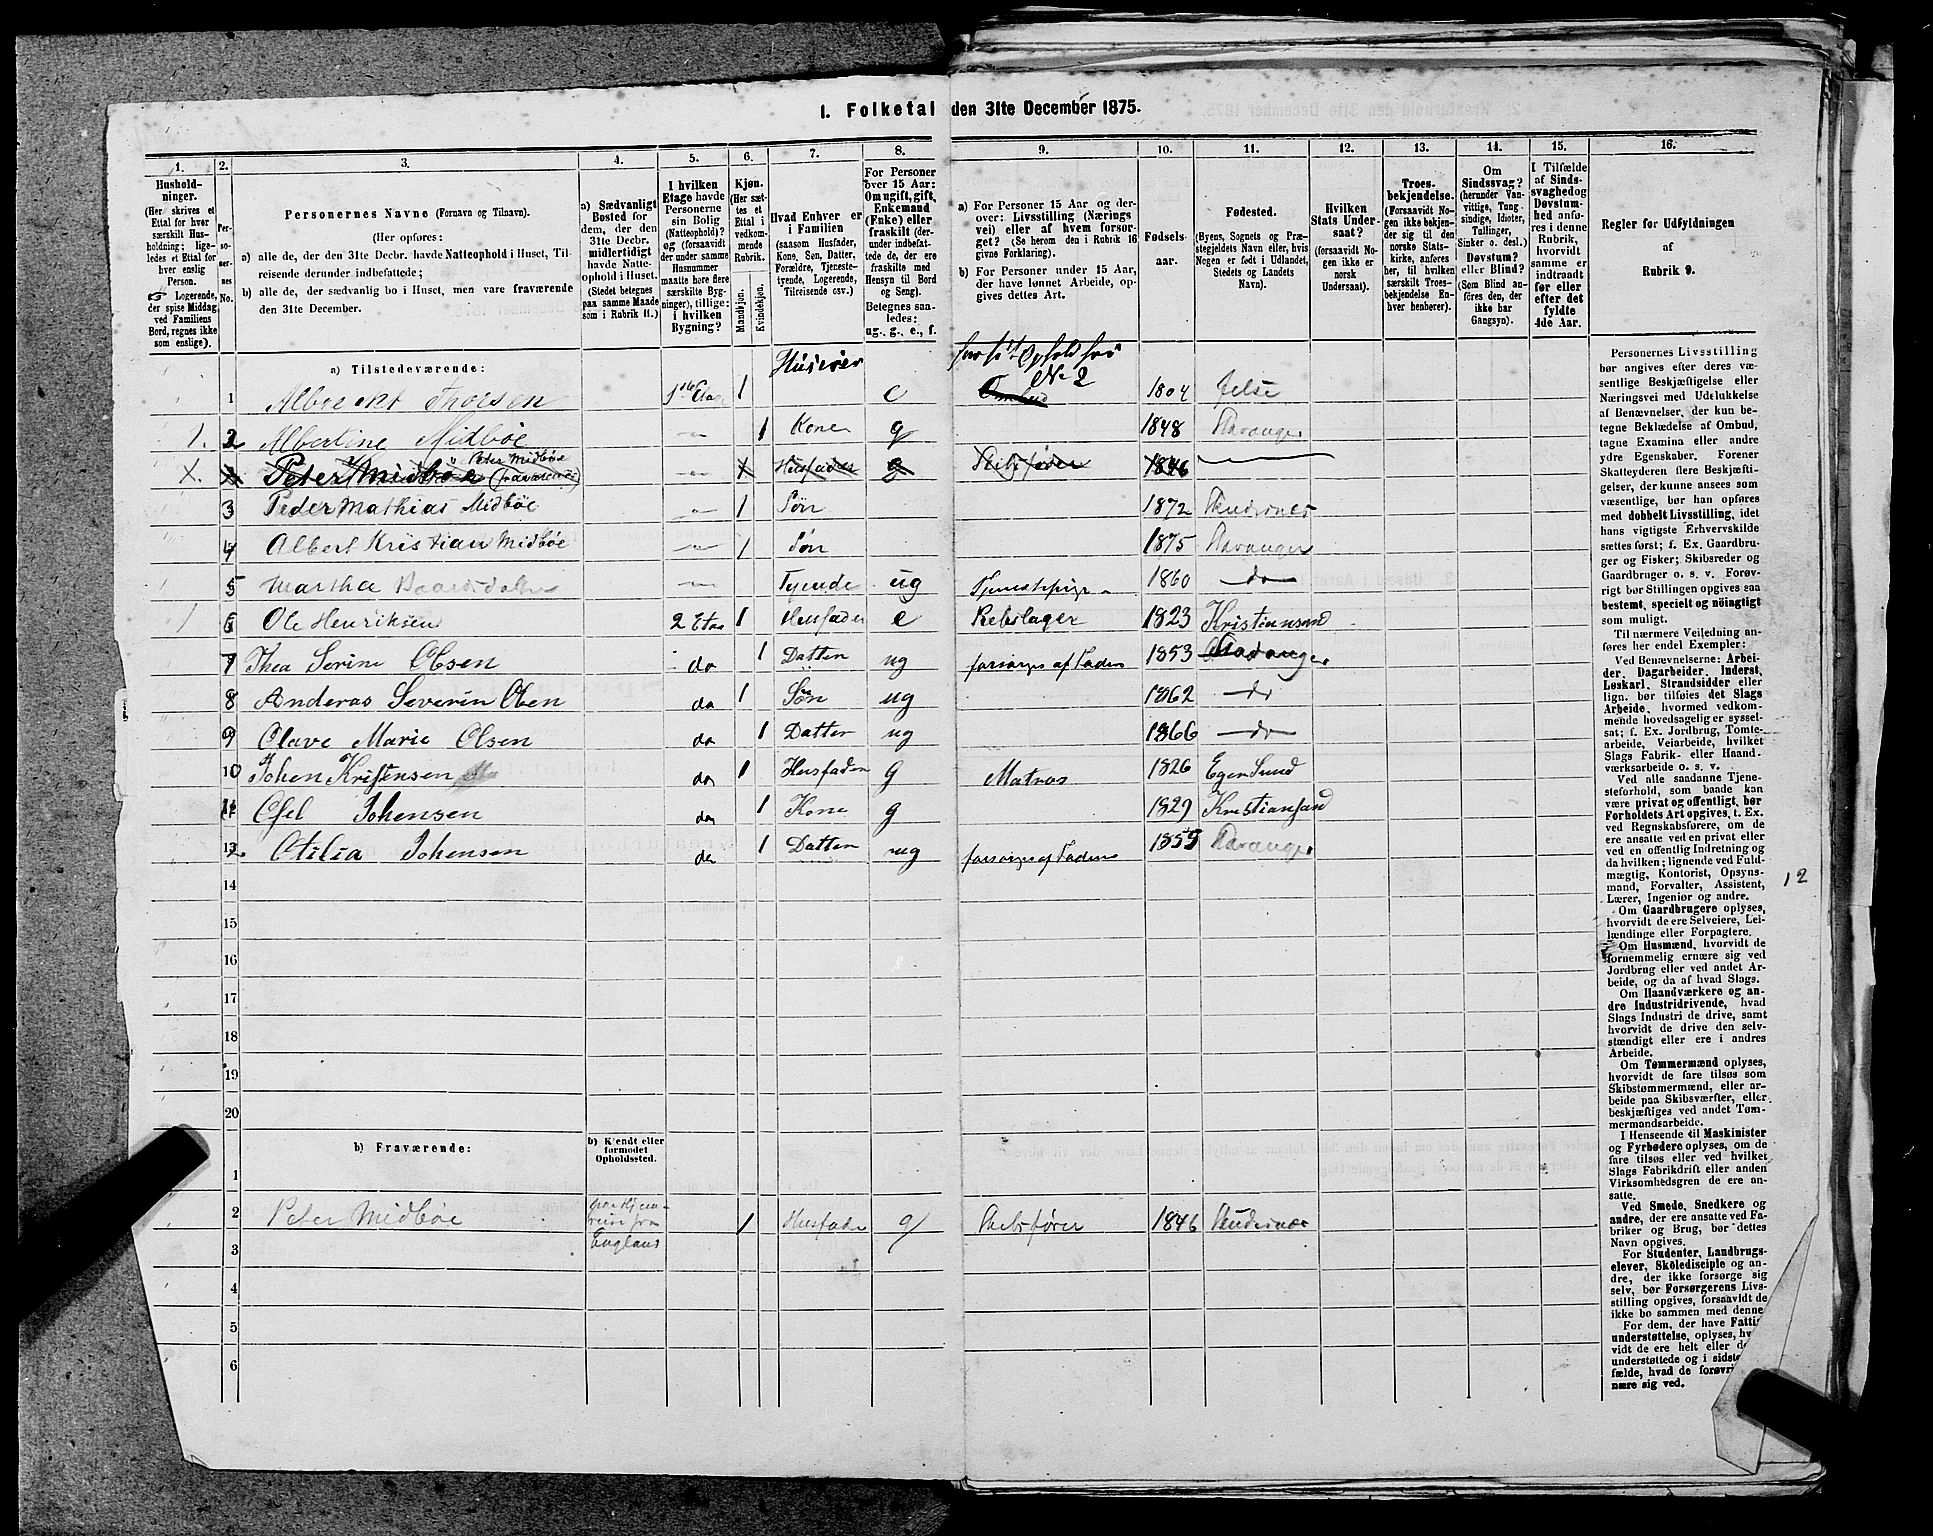 1. Folketal den 31te December 1875.
1. 2. 3. 4. 5. 6. 7. 8. 9. 10. 11. 12. 13. 14. 15. 16.
Hushold-
ninger.
(Her skrives et
Ettal for hver
særskilt Hus-
holdning; lige-
ledes et Ettal for
hver enslig
Person.
☞ Logerende,
der spise Middag
ved Familiens
Bord, regnes ikke
som enslige).
Per-
so-
ner-
nes
No.
Personernes Navne (Fornavn og Tilnavn).
(Her opføres:
a) alle de, der den 31te Decbr. havde Natteophold i Huset, Til-
reisende derunder indbefattede;
b) alle de, der sædvanlig bo i Huset, men vare fraværende
den 31te December.
a) Sædvanligt
Bosted for
dem, der den
31te Decbr.
midlertidigt
havde Natte-
ophold i Huset.
(Stedet betegnes
paa samme Maade
som i Rubrik 11.)
I hvilken
Etage havde
Personerne
sin Bolig
(Natteophold)?
og (forsaavidt
der under samme
Husnummer
maatte høre flere
særskilte Byg-
ninger), tillige:
i hvilken
Bygning?
Kjøn.
(Her sæt-
tes et
Ettal i
vedkom-
mende
Rubrik.
Mandkjøn.
Kvindekjøn.
Hvad Enhver er
i Familien
(saasom Husfader,
Kone, Søn, Datter,
Forældre, Tjeneste-
tyende, Logerende,
Tilreisende osv.)
For Personer
over 15 Aar:
Om ugift, gift,
Enkemand
(Enke) eller
fraskilt (der-
under indbefat-
tede de, der ere
fraskilte med
Hensyn til Bord
og Seng).
Betegnes saa-
ledes:
ug., g., e., f.
a) For Personer 15 Aar og der-
over: Livsstilling (Nærings
vei) eller af hvem forsør-
get? (Se herom den i Rubrik 16
givne Forklaring).
b) For Personer under 15 Aar,
der have lønnet Arbeide, op-
gives dettes Art.
Fødsels-
aar.
Fødested.
(Byens, Sognets og Præ-
stegjeldets Navn eller, hvis
Nogen er født i Udlandet,
Stedets og Landets
Navn).
Hvilken
Stats Under-
saat?
(forsaavidt No-
gen ikke er
norsk
Undersaat).
Troes-
bekjendelse.
(Forsaavidt No-
gen ikke bekjen-
der sig til den
norske Stats-
kirke, anføres
her, til hvilken
særskilt Troes-
bekjendelse En-
hver henhører).
Om
Sindssvag?
(herunder Van-
vittige, Tung-
sindige, Idioter,
Tullinger,
Sinker o. desl.)
Døvstum?
eller Blind?
(Som Blind an-
føres den, der
ikke har
Gangsyn).
I Tilfælde
af Sinds-
svaghed og
Døvstum-
hed anfø-
res i denne
Rubrik,
hvorvidt
samme er
indtraadt
før eller
efter det
fyldte
4de Aar.
Regler for Udfyldningen
af
Rubrik 9.
a) Tilstedeværende:
Huseier
No 2
1 Albrekt Thorsen 1 e 1804 Jelse
1. 2 Albertine Midbøe 1 Kone g 1848 Stavanger
Peter Midbøe
X. Peter Midbøe (fraværende) Husfader g Skibsfører 1846
3 Peder Mathias Midbøe 1 Søn 1872 Skudesnes
4 Albert Kristian Midbøe 1 Søn 1875 Stavanger
5 Martha Tyende ug Tjenestepige 1860 do
1 6 Ole Henriksen 2 Eta 1 Husfader e Rebslager 1823 Kristiansand
7 Thea Serine Olsen do 1 Datter ug forsørges af Faderen 1853 Stavanger
8 Anderas Severin Olsen do 1 Søn ug 1862 do
9 Olave Marie Olsen do 1 Datter ug 1866 do
10 Johen Kristensen do 1 Husfader g Matros 1826 Eger Sund
11 Johensen do 1 Kone g 1829 Kristiansand
12 Otilia Johensen do 1 Datter ug forsørges af Faderen 1855 Stavanger
14
15
16
17
18
19
20
b) Fraværende:
b) Kjendt eller
formodet
Opholdssted.
1
2 Peter Midbøe paa Hjem-
reise fra
England 1 Husfader g Skibsfører 1846 Skudesnæs
3
4
5
6
Personernes Livsstilling
bør angives efter deres væ-
sentlige Beskjæftigelse eller
Næringsvei med Udelukkelse
af Benævnelser, der kun be-
tegne Beklædelse af Ombud,
tagne Examina eller andre
ydre Egenskaber. Forener
Skatteyderen flere Beskjæfti-
gelser, der kunne ansees som
væsentlige, bør han opføres
med dobbelt Livsstilling, idet
hans vigtigste Erhvervskilde
sættes først; f. Ex. Gaardbru-
ger og Fisker; Skibsreder og
Gaardbruger o. s. v. Forøv-
rigt bør Stillingen opgives saa
bestemt, specielt og nøiagtigt
som muligt.
Til nærmere Veiledning an-
føres her endel Exempler:
Ved Benævnelserne: Arbei-
der, Dagarbeider, Inderst,
Løskarl, Strandsidder eller
lign. bør tilføies det Slags
Arbeide, hvormed vedkom-
mende hovedsagelig er syssel-
sat; f. Ex. Jordbrug, Tomte-
arbeide, Veiarbeide, hvilket
Slags Fabrik- eller Haand-
værksarbeide o. s. v.
Ved alle saadanne Tjene-
steforhold, som baade kan
være privat og offentligt, bør
Forholdets Art opgives, t. Ex.
ved Regnskabsførere, om de
ere ansatte ved en privat eller
ved en offentlig Indretning og
da hvilken; lignende ved Fuld-
mægtig, Kontorist, Opsyns-
mand, Forvalter, Assistent,
Lærer, Ingeniør og andre.
Om Gaardbrugere oplyses,
hvorvidt de ere Selveiere, Lei-
lændinge eller Forpagtere.
Om Husmænd, hvorvidt de
fornemmelig ernære sig ved
Jordbrug eller ved andet Ar-
beide, og da af hvad Slags.
Om Haandværkere og an-
dre Industridrivende, hvad
Slags Industri de drive, samt
hvorvidt de drive den selv-
stændigt eller ere i andres
Arbeide.
Om Tømmermænd oplyses,
hvorvidt de fare tilsøs som
Skibstømmermænd, eller ar-
beide paa Skibsværfter, eller
beskjæftiges ved andet Tøm-
mermandsarbeide.
I Henseende til Maskinister
og Fyrbødere oplyses, om de
fare tilsøs eller ved hvilket
Slags Fabrikdrift eller anden
Virksomhedsgren de ere an-
satte.
Ved Smede, Snedkere og
andre, der ere ansatte ved Fa-
briker og Brug, bør dettes
Navn opgives.
For Studenter, Landbrugs-
elever, Skoledisciple og an-
dre, der ikke forsørge sig
selv, bør Forsørgerens Livs-
stilling opgives, forsaavidt de
ikke bo sammen med denne
For dem, der have Fattig
understøttelse, oplyses,
vidt de ere helt eller
understøttede og i
fælde, hvad de
nære sig ved.
12